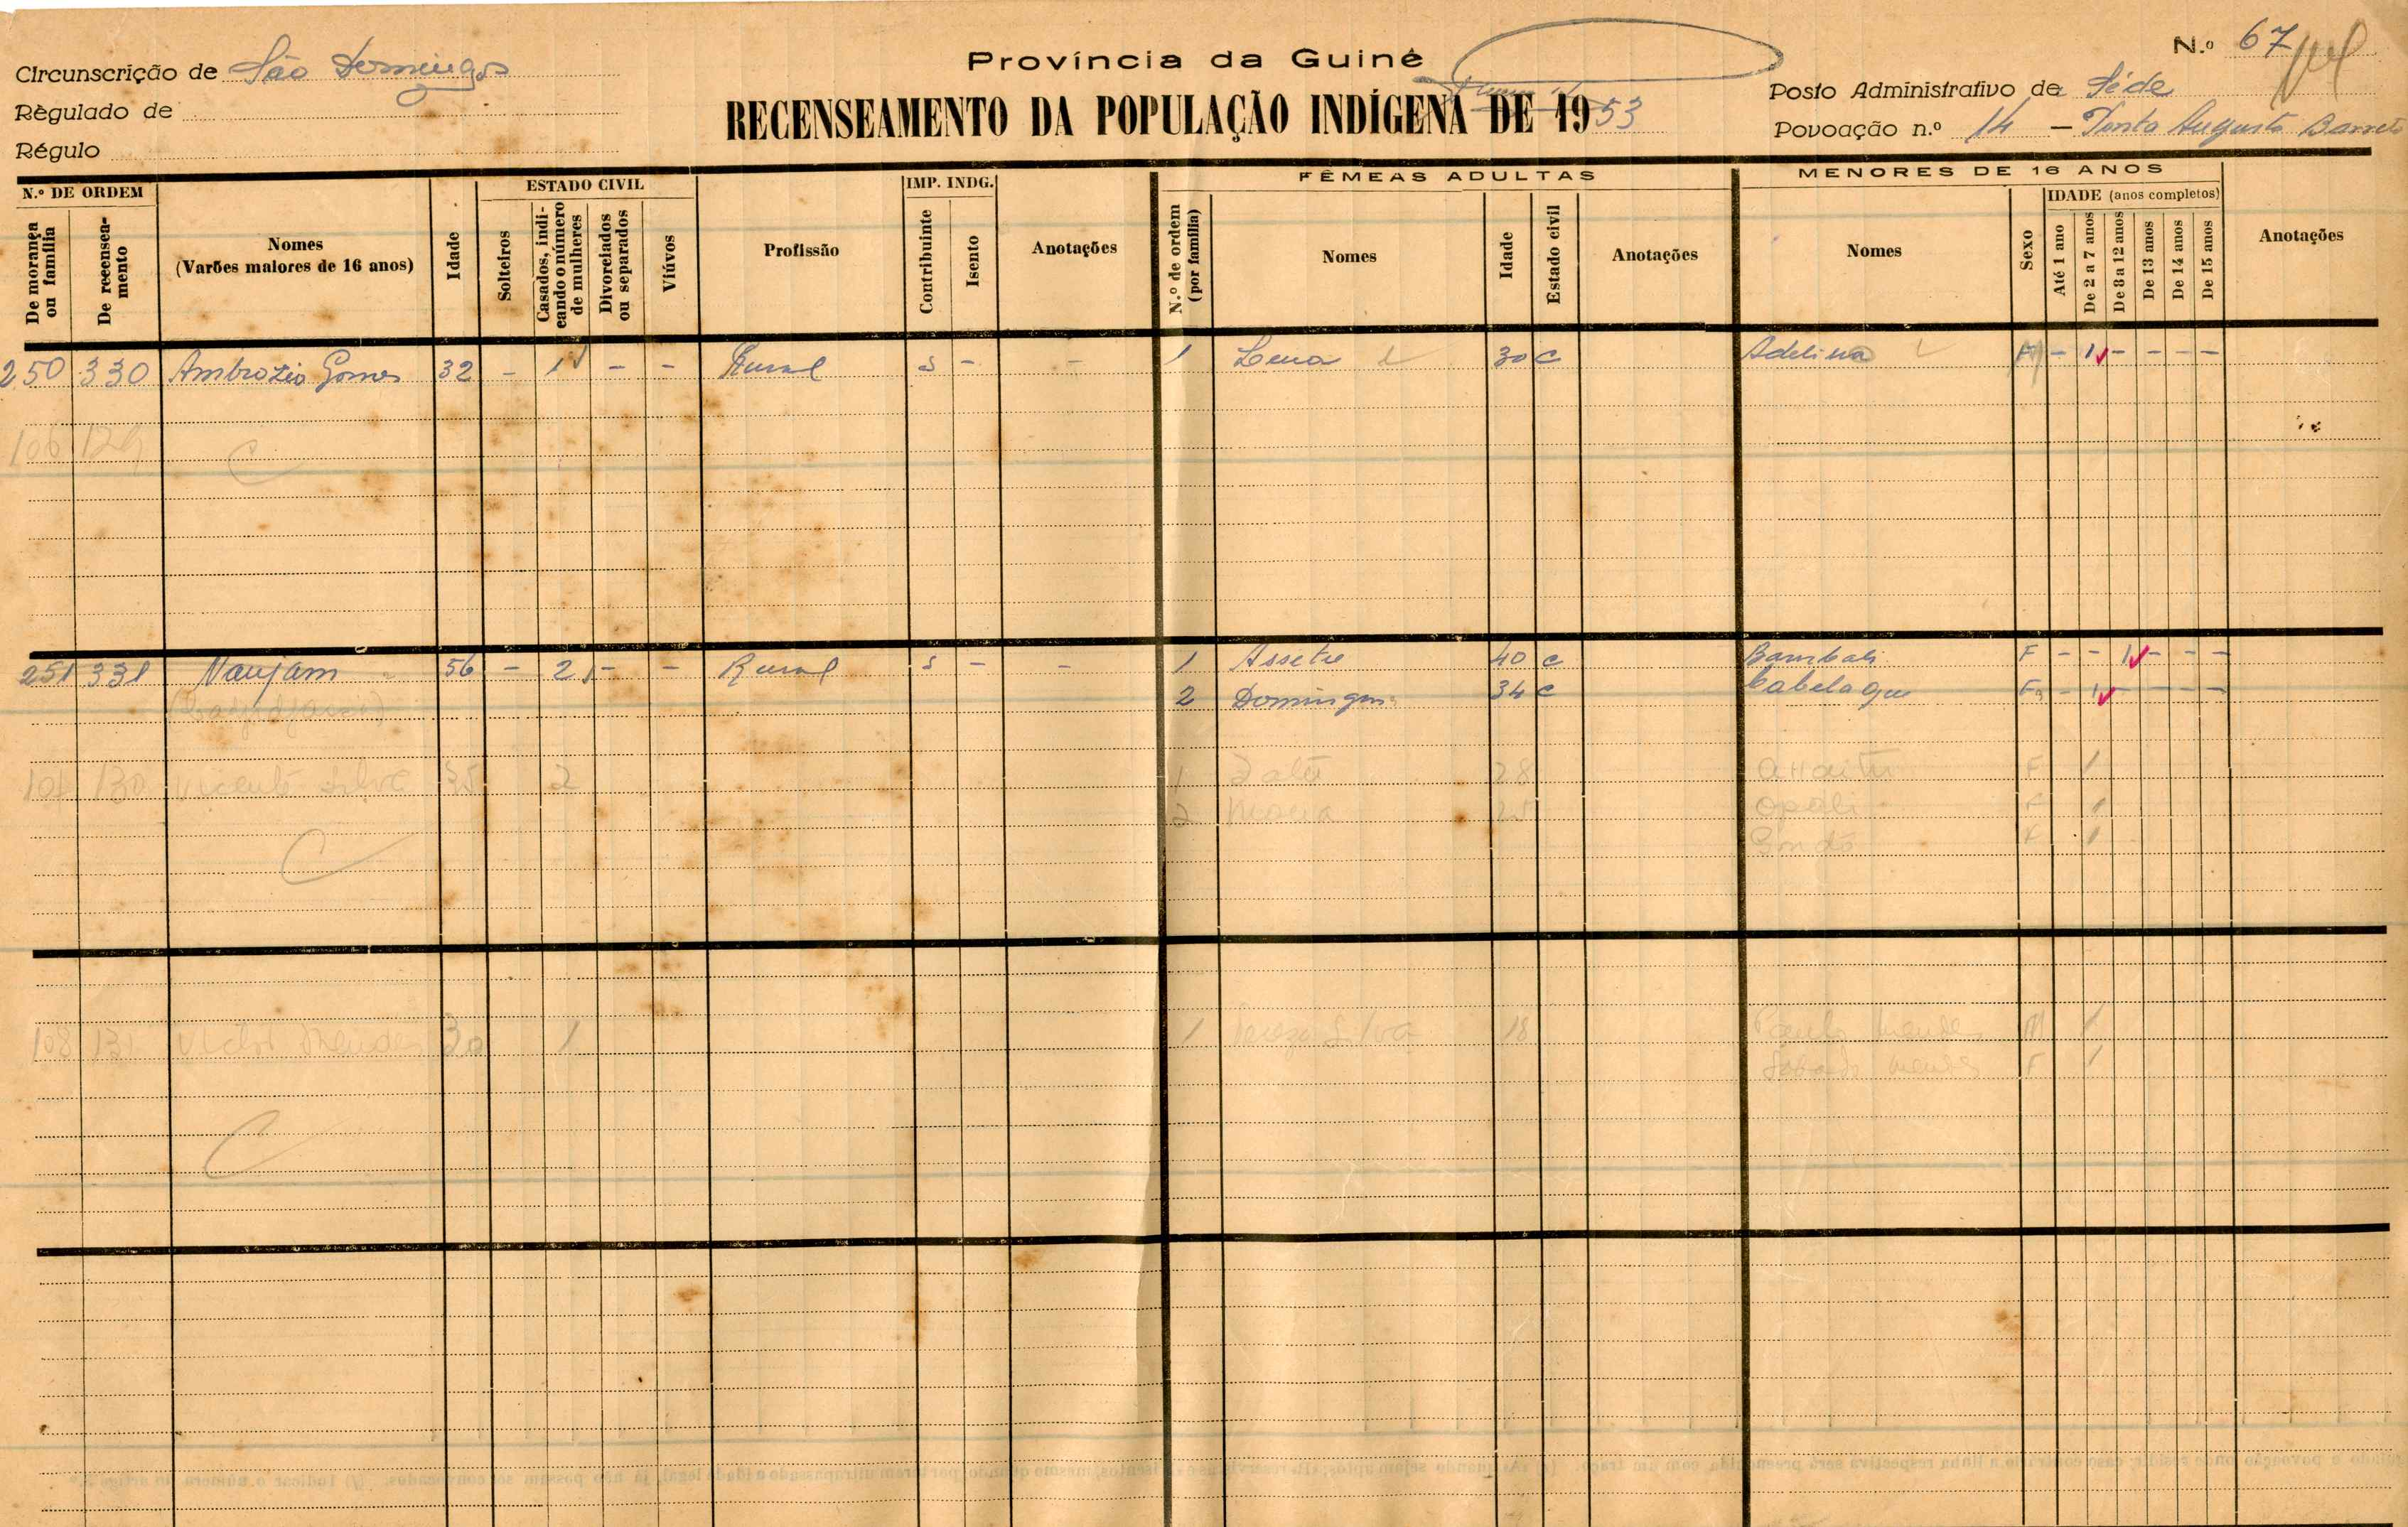 Província da Guiné
N.º 67
Circunscrição de São Domingos
Posto Administrativo de Séde
Règulado de
RECENSEAMENTO DA POPULAÇÃO INDÍGENA DE 1953
Povoação n.º 14 — Ponta Augusto Barreto
Régulo
N.º DE ORDEM
ESTADO CIVIL
IMP. INDG.
FÊMEAS ADULTAS
MENORES DE 16 ANOS
IDADE (anos completos)
De morança ou família
De recensea-mento
Nomes
(Varões maiores de 16 anos)
Idade
Solteiros
Casados, indi-cando o número de mulheres
Divorciados ou separados
Viúvos
Profissão
Contribuinte
Isento
Anotações
N.º de ordem (por família)
Nomes
Idade
Estado civil
Anotações
Nomes
Sexo
Até 1 ano
De 2 a 7 anos
De 8 a 12 anos
De 13 anos
De 14 anos
De 15 anos
Anotações
250 330 Ambrozio Gomes 32 - 1 - - Rural s - - 1 Lena 30 c Adelina F - 1 - - - -
106 129
251 331 Naujam 56 - 2 - - Rural s - - 1 Assetu 40 c Bambali F - - 1 - - -
2 34 c Cabelaque F - 1 - - - -
107 130 Vicente Silva 35 2 1 28 F 1
2 Maria 25 Opali F 1
F 1
108 131 Victor Mendes 30 1 1 Silva 18 Mendes M 1
Mendes F 1